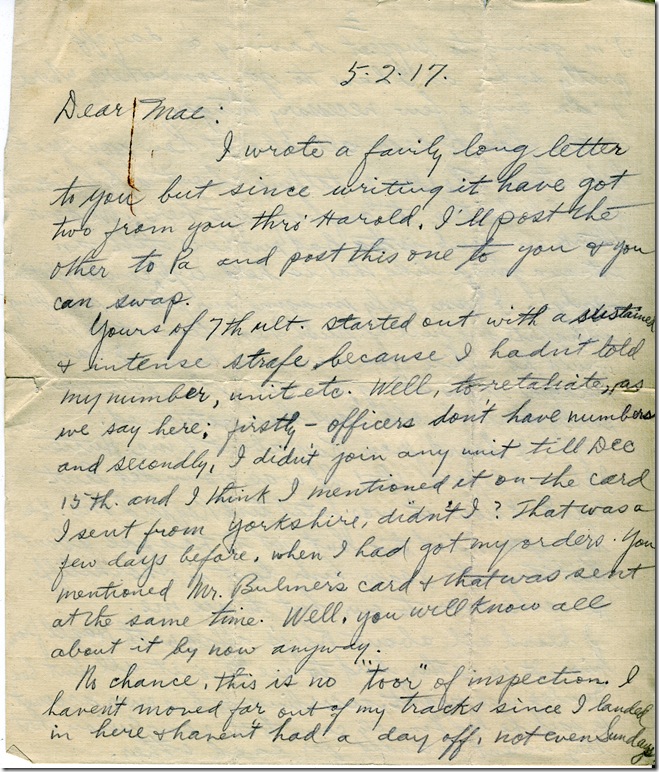 5.2.17.
Dear Mac:
I wrote a fairly long letter
to you but since writing it have got
two from you thro' Harold. I'll post the
other to Pa and post this one to you & you
can swap.
Yours of 7th ult. started out with a sustained
& intense strafe because I hadn't told
my number, unit etc. Well, to retaliate, as
we say here; firstly - officers don't have numbers
and secondly, I didn't join any unit till Dec
15th. and I think I mentioned it on the card
I sent from Yorkshire, didn't I? That was a
few days before, when I had got my orders. You
mentioned Mr. Bulmer's card & that was sent
at the same time. Well, you will know all
about it by now anyway.
No chance, this is no "toor" of inspection. I
haven't moved far out of my tracks since I landed
in here & haven't had a day off, not even Sunday